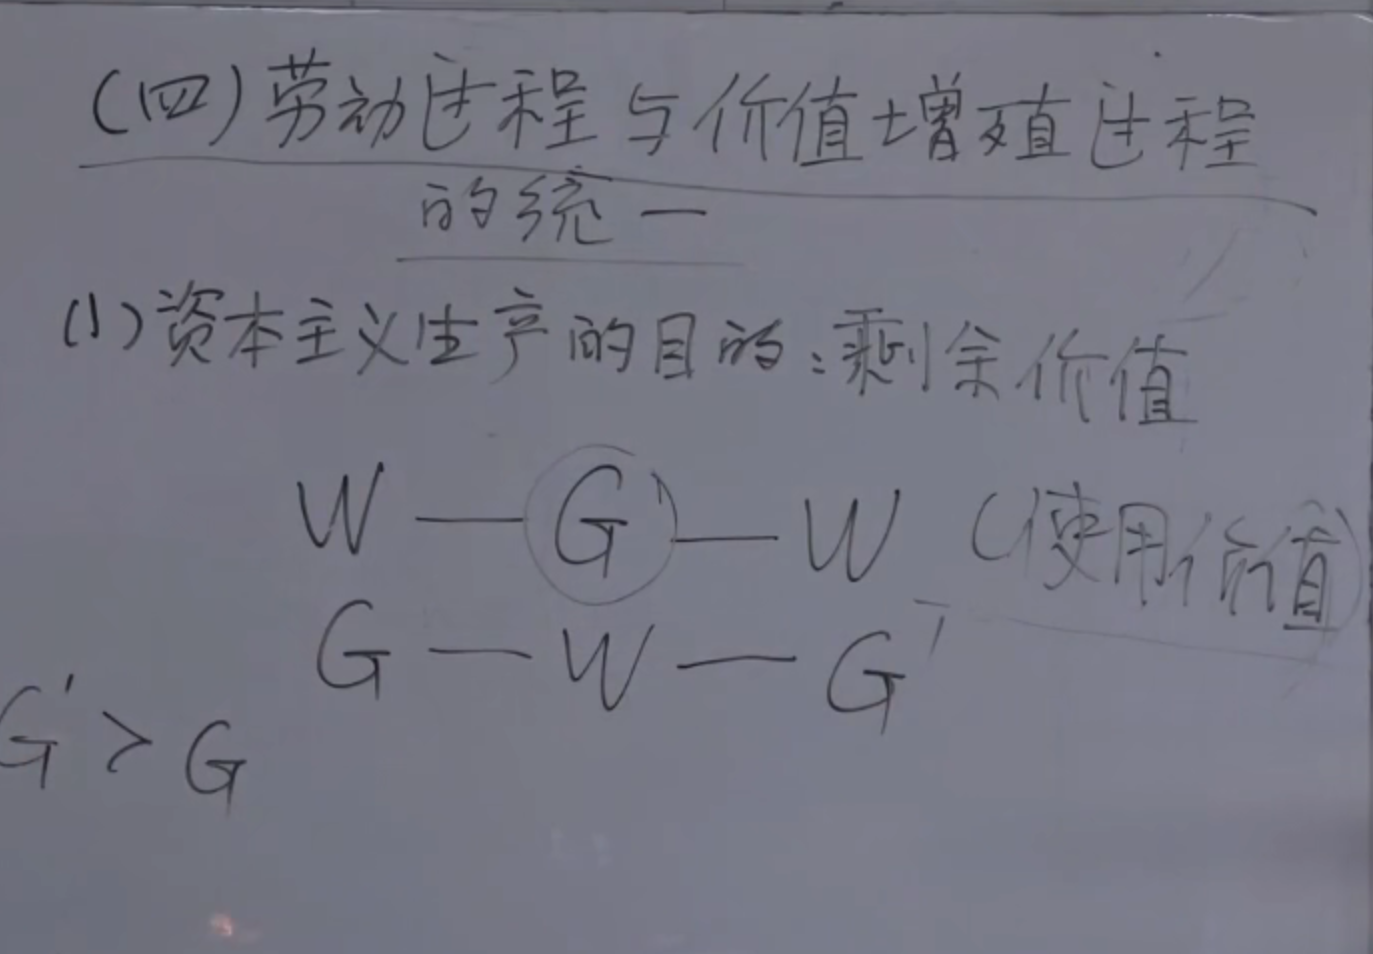 (四)劳动过程与价值增殖过程
的统一
(1)资本主义生产的目的:剩余价值
W—G—W (使用价值)
G—W—G'
G'>G